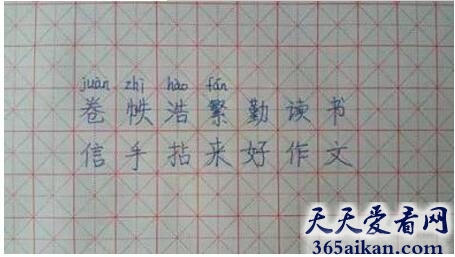 juàn zhì hào fán
卷帙浩繁勤读书
信手拈来好作文
天天爱看网
365aikan.com